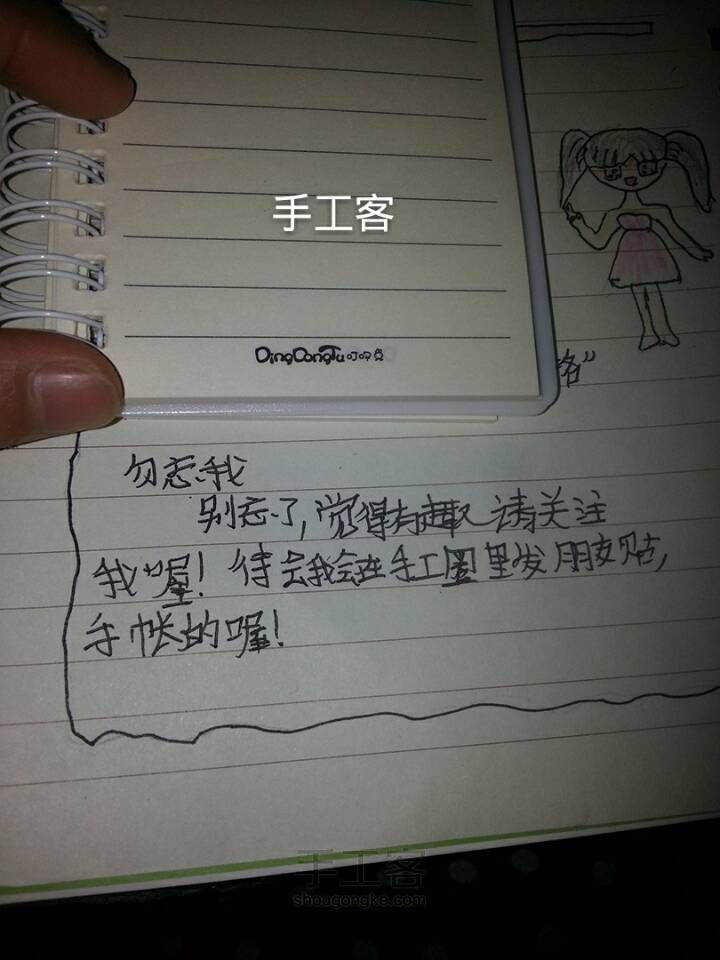 手工客
DingDongTu叮咚兔
格”
勿忘我
别忘了,觉得有趣请关注
我喔!待会我会在手工圈里发朋友贴,
手帐的喔!
手工客
shougongke.com